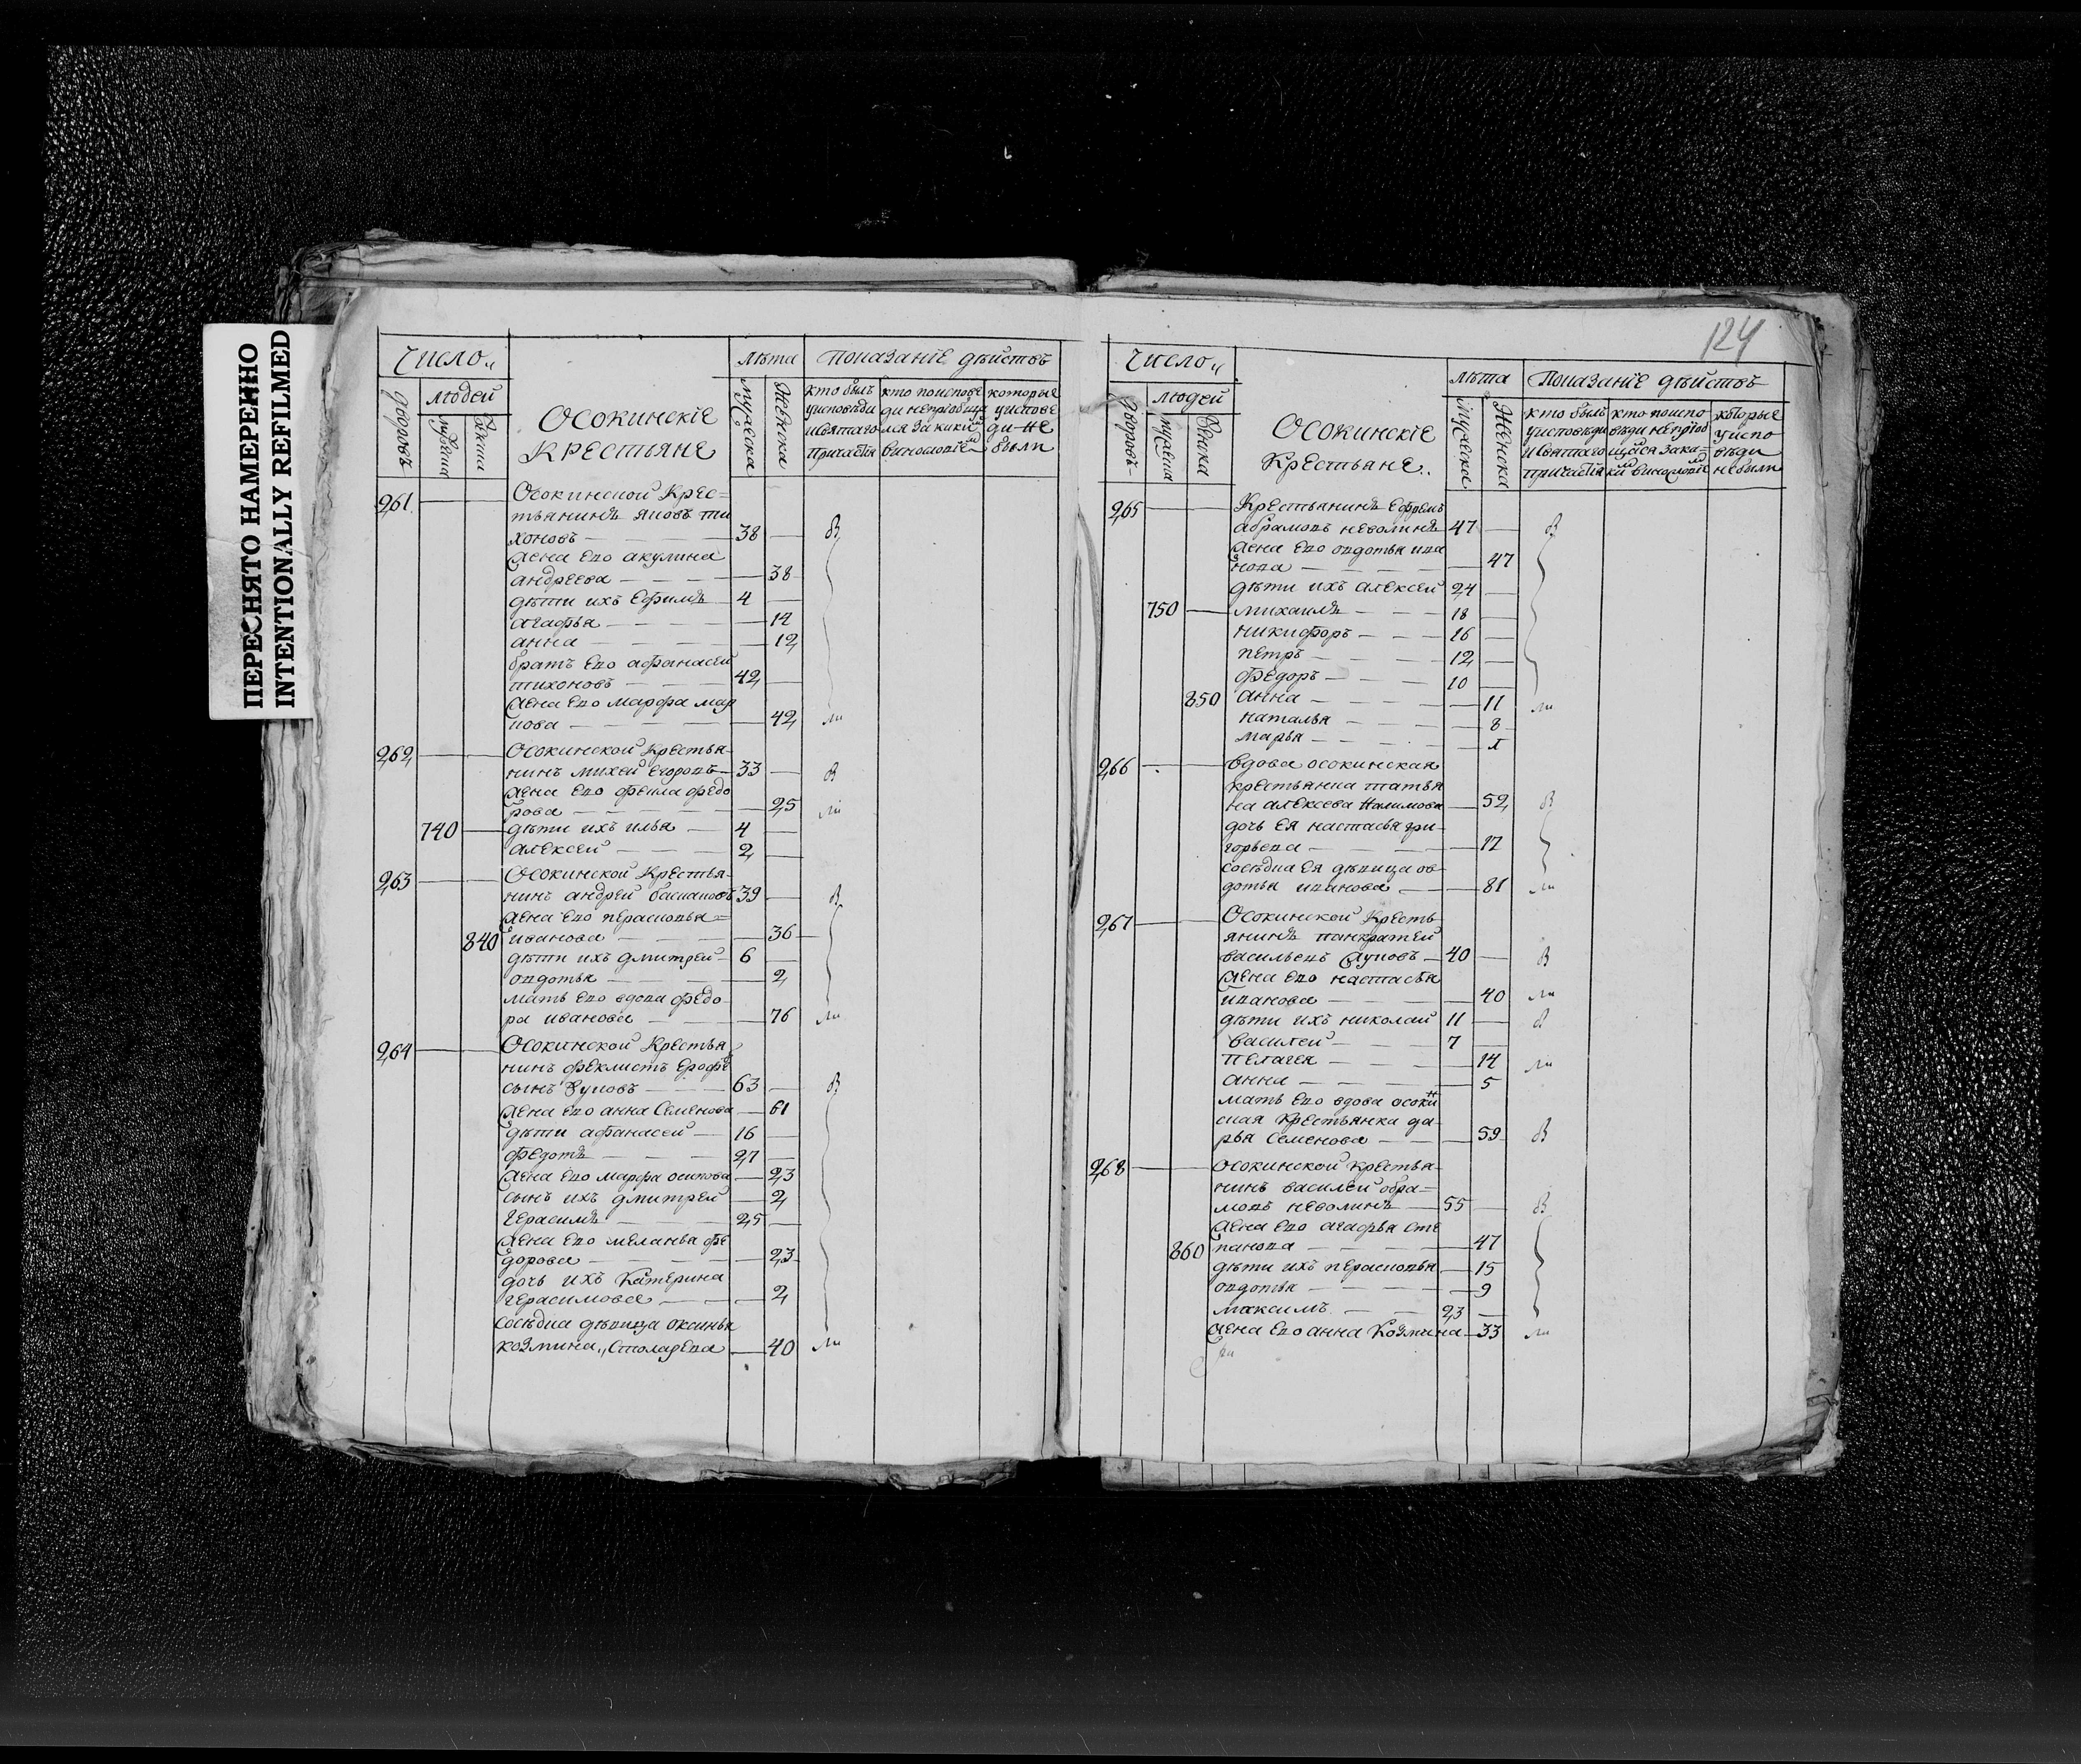 ПЕРЕСНЯТО НАМЕРЕННО
INTENTIONALLY REFILMED
Число
лѣта
показаніе дѣйствъ
дворовъ
людей
ОСОКИНСКІЕ
КРЕСТЬЯНЕ
мужеска
женска
кто былъ
кто поиспове
которые
уисповѣди
уиспове
исвятаго
ди не
причастія
были
261
Осокинской Крес=
тьянинъ яковъ ти
хоновъ 38 В
жена ево акулина
андреева 38
дѣти ихъ Ефимъ 4
агафья 14
анна 12
братъ ево афанасей
тихоновъ 42
жена ево марфа мар
кова 42 ли
262 Осокинской Крестья
нинъ михей егоровъ 33 В
жена ево фекла федо
рова 25 ли
740 дѣти ихъ илья 4
алексей 2
263 Осокинской Крестья
нинъ андрей 39 В
жена ево перасковья=
840 иванова 36
дѣти ихъ дмитрей 6
овдотья 2
мать ево вдова федо
ра иванова 76 ли
264 Осокинской Крестья
нинъ феклистъ Ерофе
сынъ 63 В
жена ево анна Семенова 61
дѣти афанасей 16
федотъ 27
жена ево марфа осипова 23
сынъ ихъ дмитрей 2
герасимъ 25
жена ево меланья фе
дорова 23
дочь ихъ Катерина
герасимова 2
сосѣдка дѣвица оксинья
козмина,, Столарева 40 ли
124
Число
лѣта
показаніе дѣйствъ
дворовъ
людей
мужеска
женска
ОСОКИНСКІЕ
Крестьяне.
мужеска
женска
кто былъ
кто поиспо
которые
уисповѣди
вѣди непріоб
уиспо
исвятаго
щался зака=
вѣди
причастія
небыли
265 Крестьянинъ Ефремъ
абрамовъ неволинъ 47 В
жена ево овдотья ива
нова 47
дѣти ихъ алексей 24
750 михаилъ 18
никифоръ 16
петръ 12
федоръ 10
850 анна 11 ли
наталья 8
марья
266 вдова осокинская
крестьянка татья
на алексева Налимова 52 В
дочь ея настасья гри-
горьева 17
сосѣдка ея дѣвица ов
дотья иванова 81 ли
267 Осокинской Кресть
янинъ панкратей
васильевъ 40 В
жена ево настасья
иванова 40 ли
дѣти ихъ николай 11 В
василей 7
пелагея 14 ли
анна 5
мать ево вдова осокин
ская Крестьянка да
рья Семенова 59 В
268 осокинской крестья
нинъ василей обра=
мовъ неволинъ 55 В
жена ево агафья сте
860 панова 47
дѣти ихъ перасковья 15
овдотья 9
максимъ 23
жена ево анна Козмина 33 ли